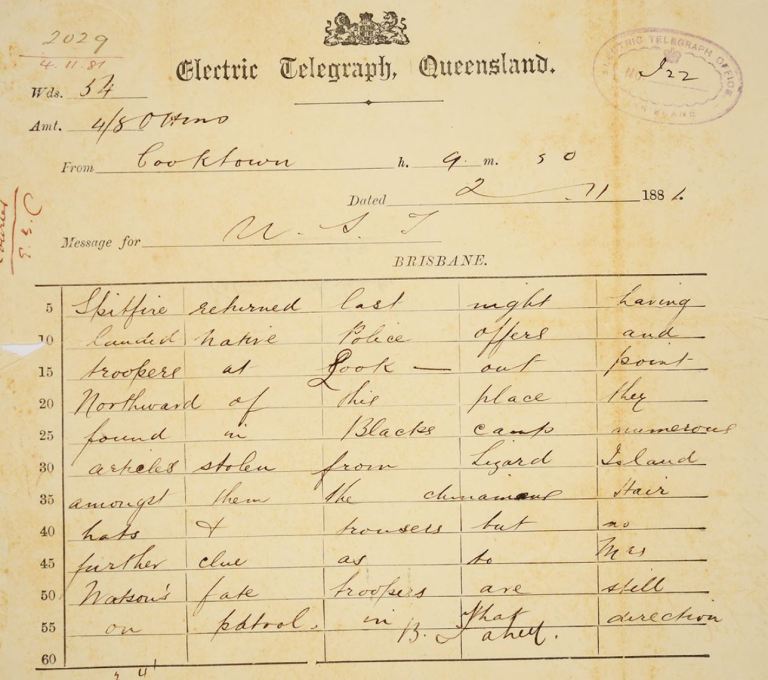 2029
4.11.81
Electric Telegraph, Queensland.
ELECTRIC TELEGRAPH OFFICE
BRISBANE
Wds. 54
Amt. 4/8 OHMS
From Cooktown h. 9 m. 50
Dated 2 11 1881.
Message for U. S. T
BRISBANE.
5 Spitfire returned last night having
10 landed native Police offers and
15 troopers at Look-out point
20 Northward of this place they
25 found in Blacks camp numerous
30 articles stolen from Lizard Island
35 amongst them the chinamens Hair
40 hats & trousers but no
45 further clue as to Mrs
50 Watson's fate troopers are still
55 on patrol. in that direction
B. Fahey.
60